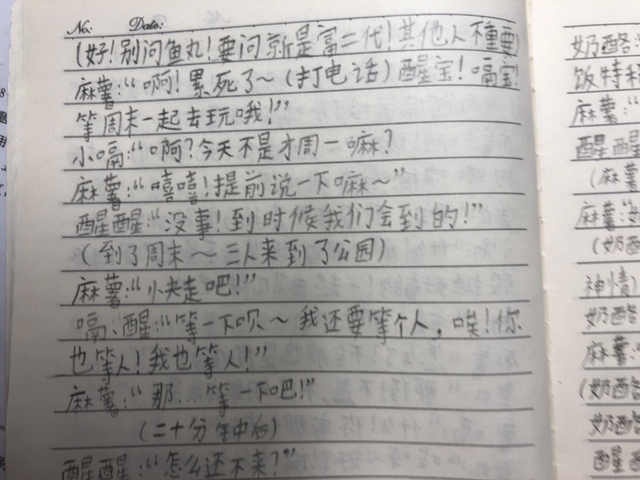 No: Date:
(好!别问鱼丸!要问就是富二代!其他人不重要
麻薯:“啊!累死了~(打电话)醒宝!嗝宝!
等周末一起去玩哦!”
小嗝:“啊?今天不是才周一嘛?
麻薯:“嘻嘻!提前说一下嘛~”
醒醒:“没事!到时候我们会到的!”
(到了周末~三人来到了公园)
麻薯:“快走吧!”
嗝、醒:“等一下呗~我还要等个人,唉!你
也等人!我也等人!”
麻薯:“那...等一下吧!”
(二十分钟后)
醒醒:“怎么还不来?”
奶酪
饭特
麻薯:“
醒醒
(麻
麻薯:
(奶
神情)
奶酪
麻薯:
(奶酪
奶酪
醒醒